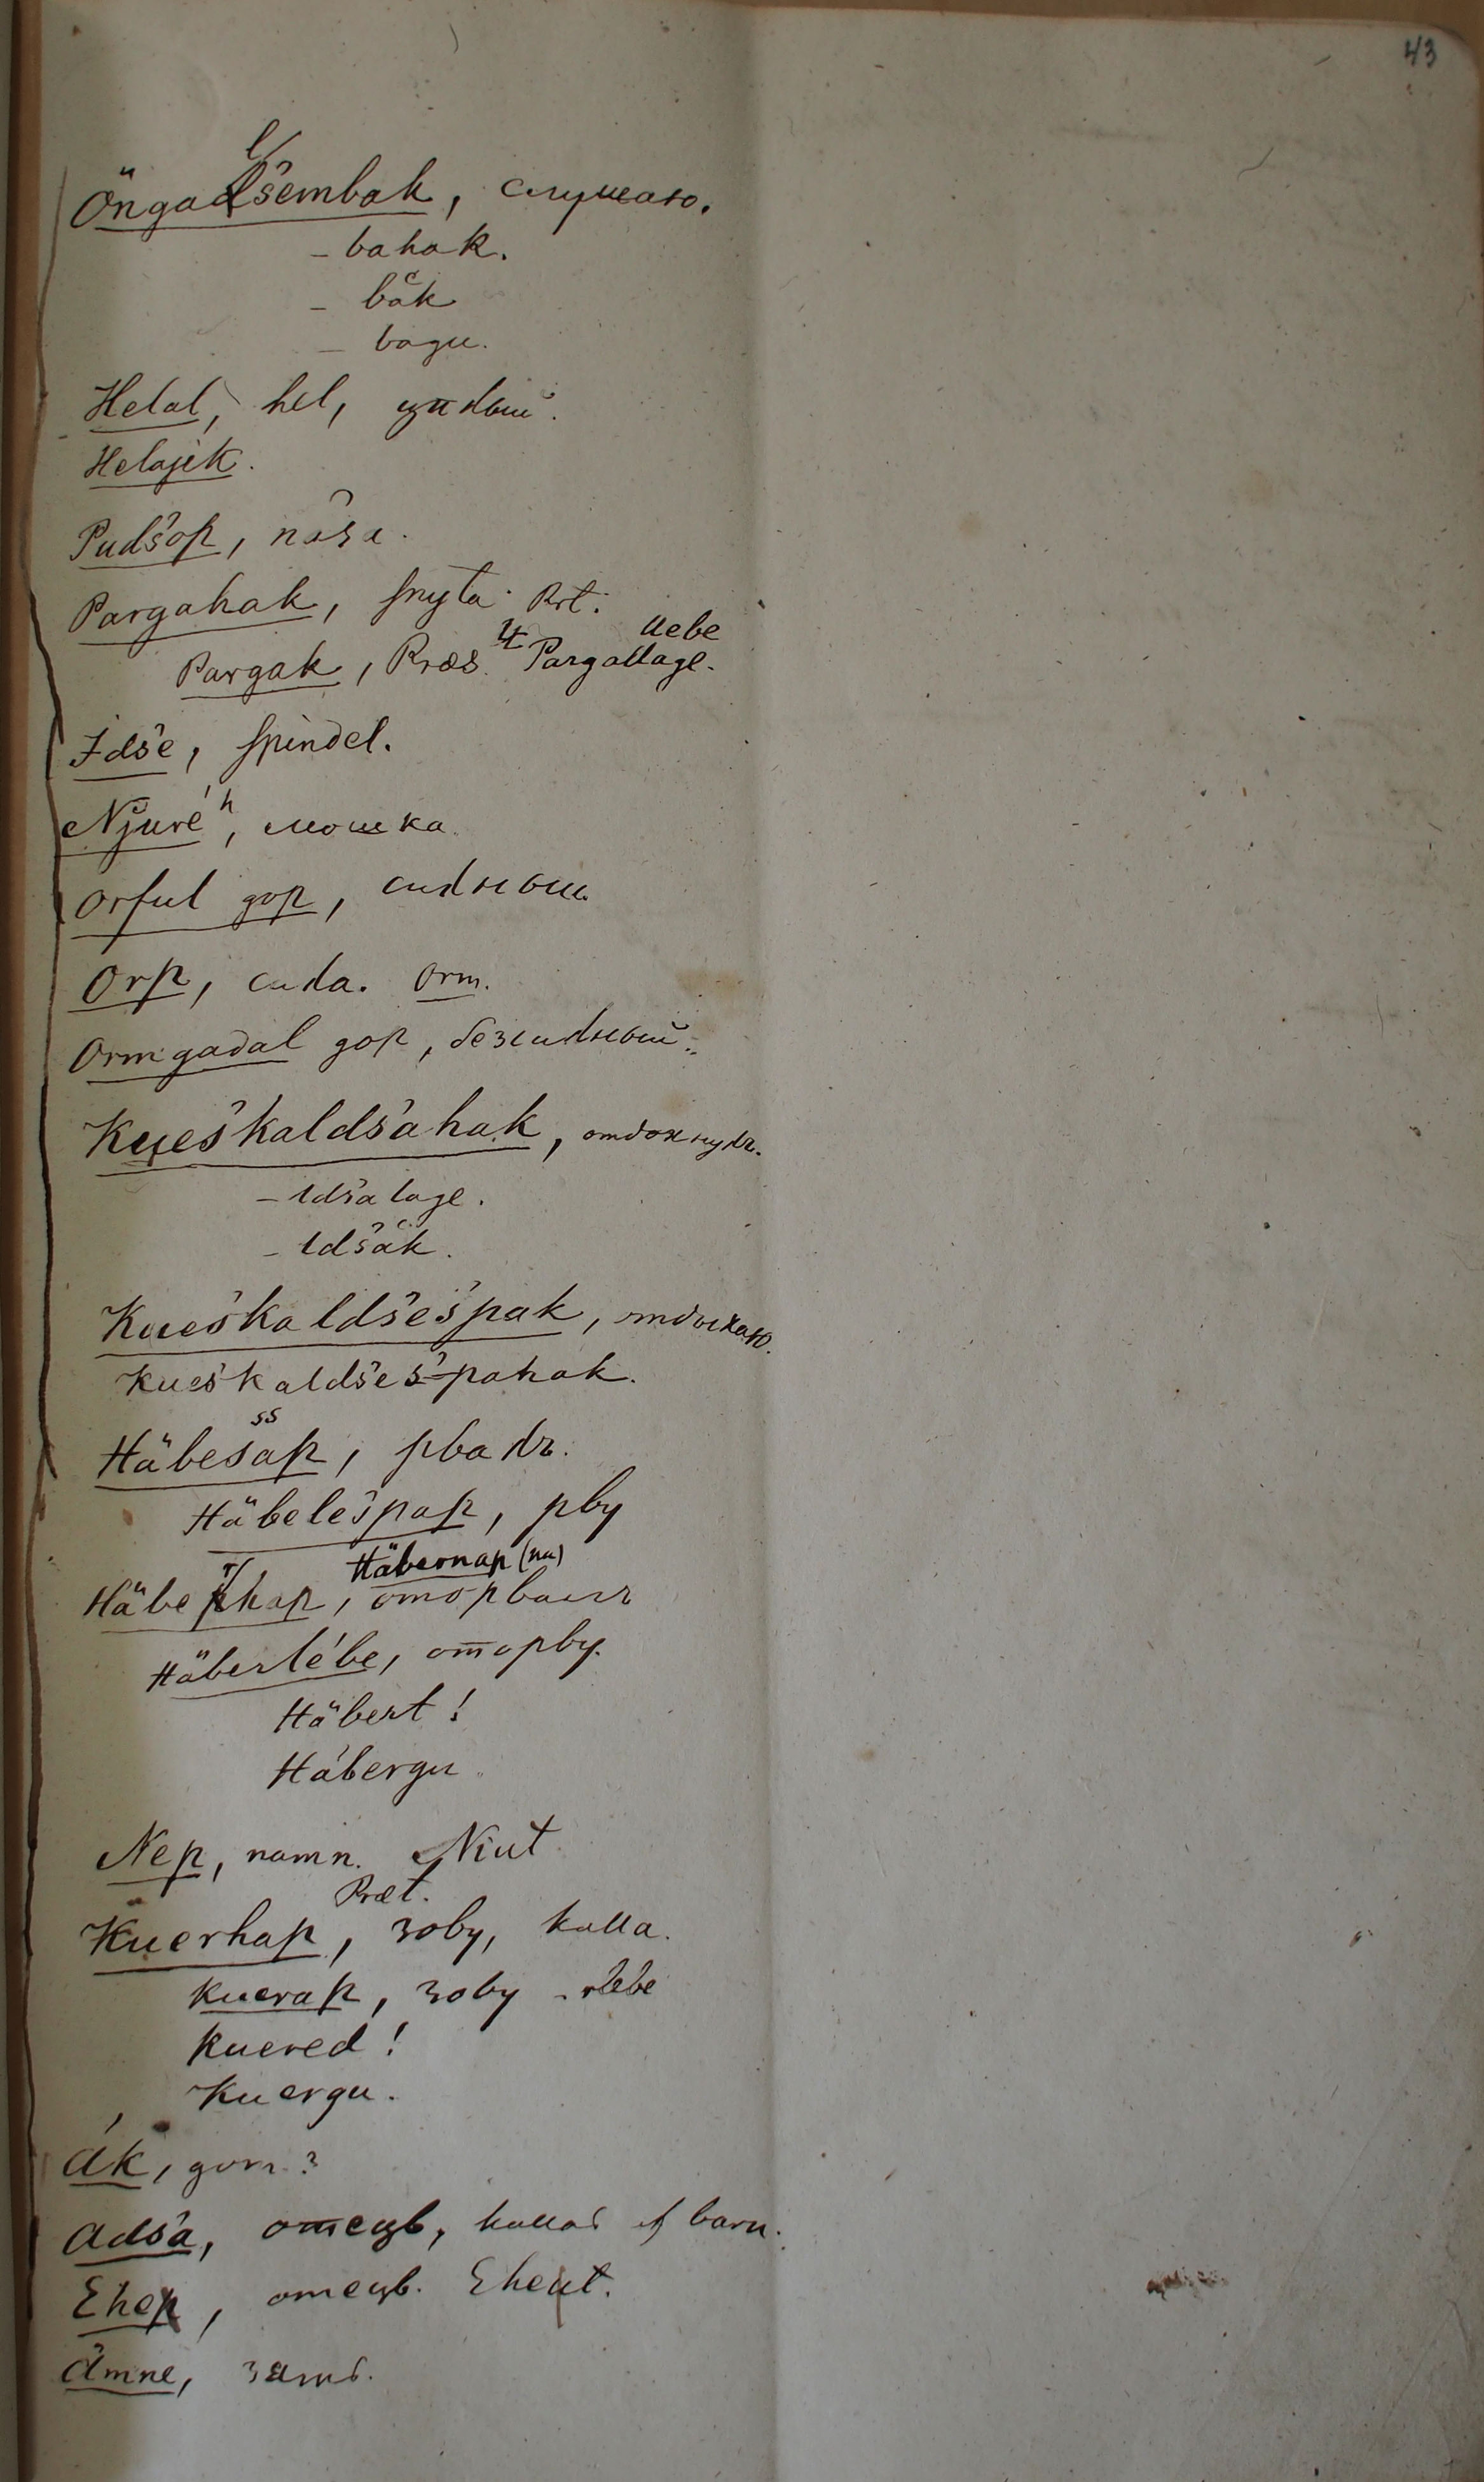 43
Öngalśembak, слушаю.
- bahak.
- bäk
- bagu.
Helal, hel, цѣлый.
Helajik.
Pudśop, näsa.
Pargahak, snyta. Prt.
Pargak, Præs. Pargallage.
Idśe, spindel.
Njuré, мошка.
Orsul gop, сильный
Orp, сила. Orm.
Orm gadal gop, безсильный.
Kueśkaldśahak, отдохнулъ.
- ldśalage.
- ldśäk.
Kueśkaldśeśpak, отдыхаю.
Kueśkaldśeś-pahak.
ss
Häbesap, рвалъ.
Häbeleśpap, рву
Häbernap (na)
Häberhap, оторвалъ
Häberlébe, оторву.
Häbert!
Häbergu.
Nep, namn. Niut
Præt.
Kuerhap, зову, kalla.
Kuerap, зову - lebe
Kuered!
Kuergu.
Ák,
Adśa, отецъ, kallas af barn.
Ehep, отецъ. Eheut.
Ämne, зять.